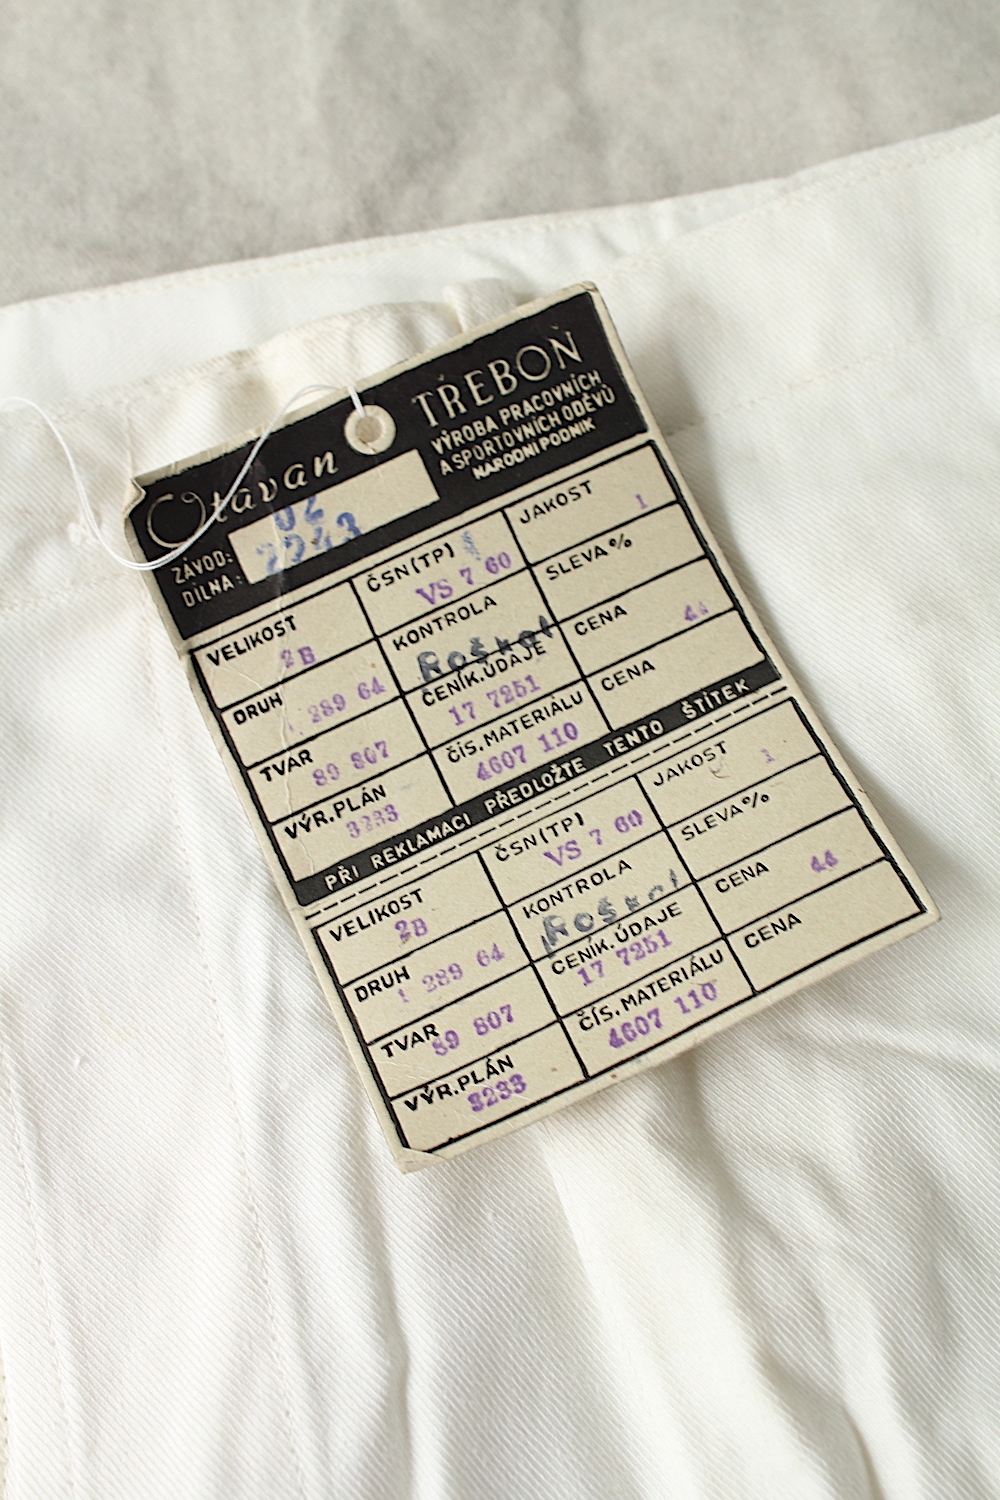 Otavan TŘEBOŇ
VÝROBA PRACOVNÍCH
A SPORTOVNÍCH ODĚVŮ
NÁRODNÍ PODNIK
ZÁVOD: 02
DÍLNA: 2243
VELIKOST 2B
ČSN(TP) VS 7 60
JAKOST 1
DRUH 289 64
KONTROLA
SLEVA%
TVAR 89 807
CENÍK.ÚDAJE 17 7251
CENA 44
VÝR.PLÁN 3233
ČÍS.MATERIÁLU 4607 110
CENA
PŘI REKLAMACI PŘEDLOŽTE TENTO ŠTÍTEK
VELIKOST 2B
ČSN(TP) VS 7 60
JAKOST 1
DRUH 1 289 64
KONTROLA
SLEVA%
TVAR 89 807
CENÍK.ÚDAJE 17 7251
CENA 44
VÝR.PLÁN 3233
ČÍS.MATERIÁLU 4607 110
CENA